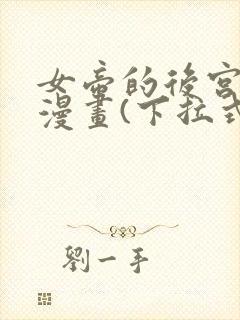 女帝的後宮
漫畫(下拉式
劉一手